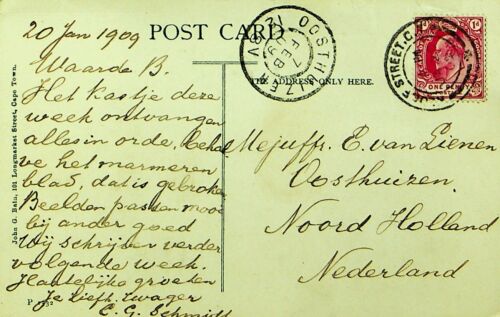 POST CARD
THE ADDRESS ONLY HERE.
20 Jan 1909
Waarde B.
Het kastje deze
week ontvangen
alles in orde, behal
ve het marmeren
blad, dat is gebroken
Beelden passen mooi
bij ander goed
Wij schrijven verder
volgende week.
Hartelijke groeten
Je liefh. zwager
E. G. Schmidt
Mejuffr. E. van Lienen
Oosthuizen
Noord Holland
Nederland
John G. Bain, 101 Longmarket Street, Cape Town.
OOSTHUIZEN
7 FEB
STREET. C
ONE PENNY